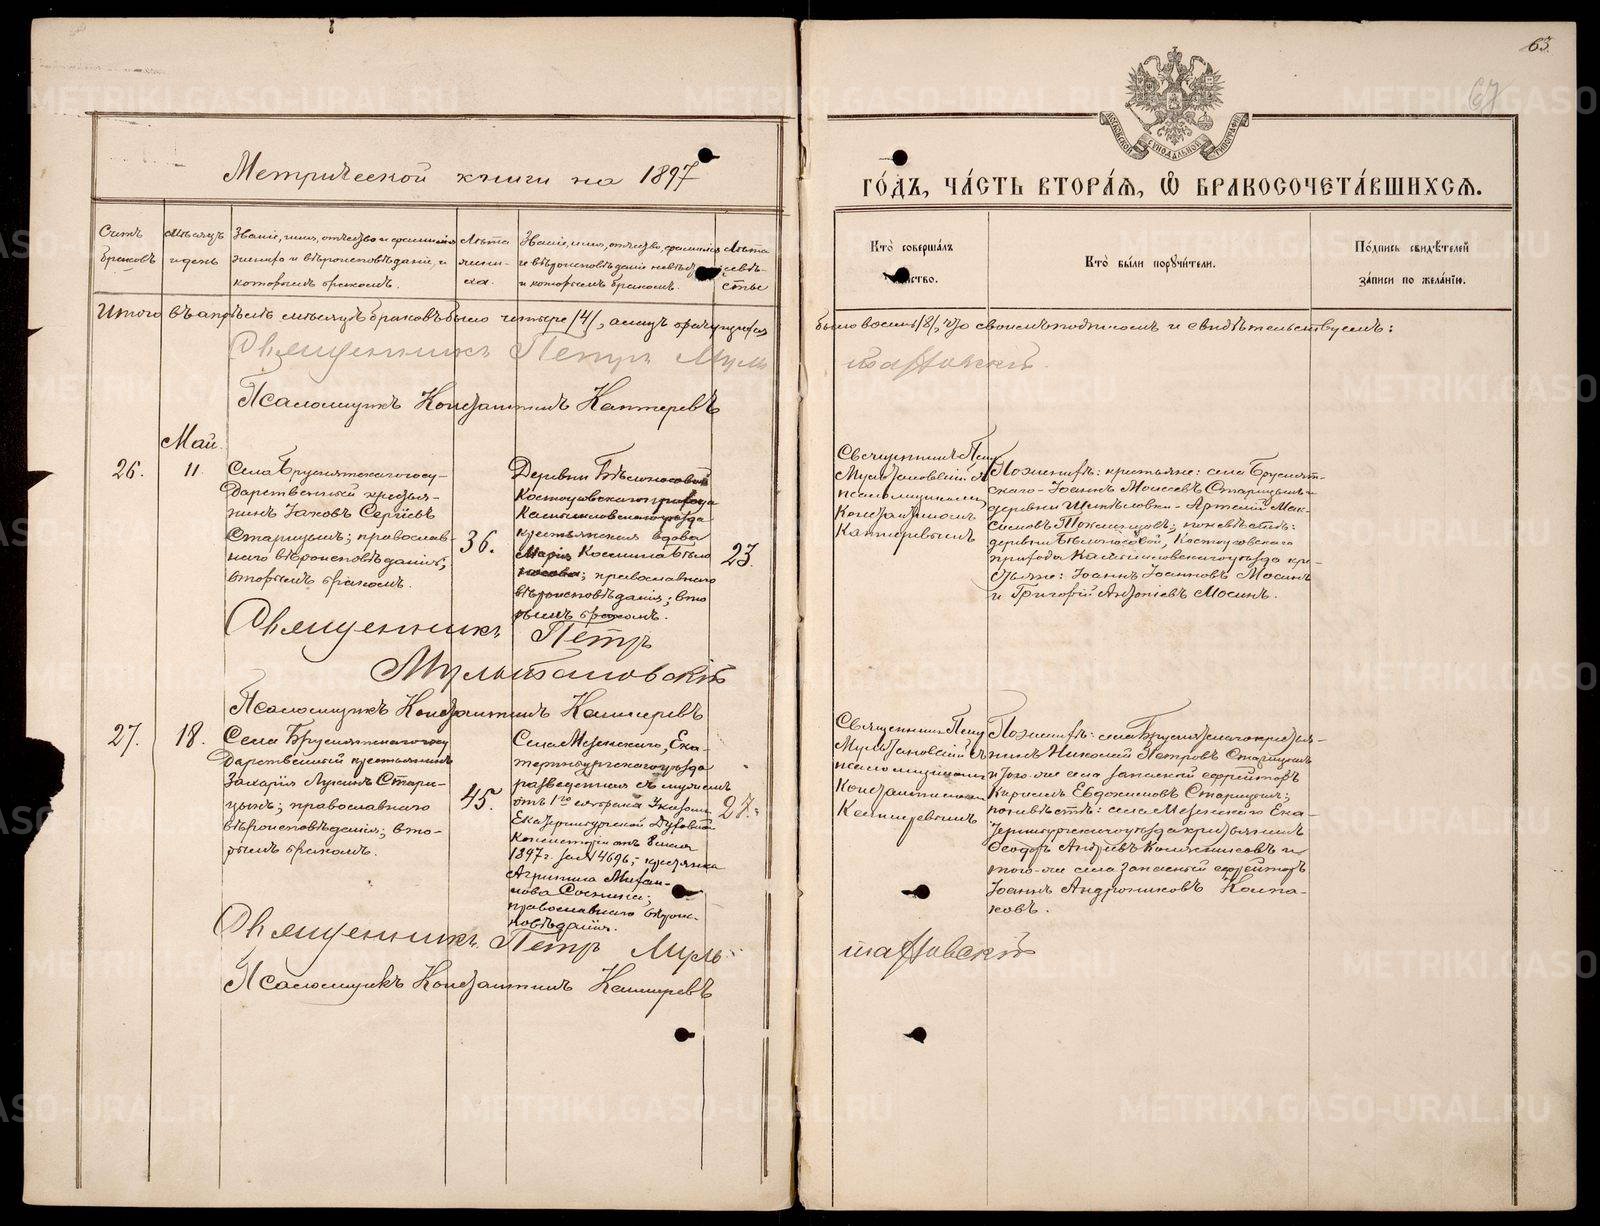 63.
67
Метрической книги на 1897
МОСКОВСКОЙ СѴНОДАЛЬНОЙ ТИПОГРАФІИ
ГО́ДЪ, ЧА́СТЬ ВТОРА́Я, Ѽ БРАКОСОЧЕТА́ВШИХСЯ.
Счетъ
браковъ
Мѣсяцъ
и день
Званіе, имя, отчество и фамилія
жениха и вѣроисповѣданіе, и
которымъ бракомъ.
Лѣта
жени-
ха.
Званіе, имя, отчество, фамилія
и вѣроисповѣданіе невѣсты
и которымъ бракомъ.
Лѣта
невѣ-
сты
Кто̀ соверша́лъ
Кто̀ бы́ли порꙋчи́тели.
По́дпись свидѣ́телей
за́писи по жела́нію.
Итого въ апрѣлѣ мѣсяцѣ браковъ было четыре /4/, а лицъ
было восемь /8/, что своимъ подписомъ и свидѣтельствуемъ:
Священникъ Петръ Муль
тановскій.
Псаломщикъ Константинъ Кантеревъ
Май.
26.
11.
Села Бруснятскаго госу-
дарственный крестья-
нинъ Іаковъ Сергіевъ
Старицынъ; православ-
наго вѣроисповѣданія;
вторымъ бракомъ.
36.
Деревни Бѣлоносовой
Колчедановскаго прихода
Камышловскаго уѣзда
крестьянская вдова
Марія Космина Бѣло
носова; православнаго
вѣроисповѣданія; вто
рымъ бракомъ.
23.
Священникъ Петръ
Мультановскій съ
псаломщикомъ
Константиномъ
Кантеревымъ
По женихѣ: крестьяне: села Бруснят-
скаго - Іоаннъ Моисеевъ Старицынъ и
деревни - Артемій Мак-
симовъ; по невѣстѣ:
деревни Бѣлоносовой,
прихода Камышловскаго уѣзда кре-
стьяне: Іоаннъ Іоанновъ Мосинъ
и Григорій Антоніевъ Мосинъ.
Священникъ Петръ
Мультановскій
Псаломщикъ Константинъ Кантеревъ
27.
18.
Села Бруснятскаго госу
дарственный крестьянинъ
Захарія Лукинъ Стари-
цынъ; православнаго
вѣроисповѣданія; вто-
рымъ бракомъ.
45.
Села Мезенскаго, Ека-
теринбургскаго уѣзда
разведенная съ мужемъ
отъ 1го брака Указомъ
Екатеринбургской Духовной
Консисторіи отъ
1897 г. за № 4696; крестьянка
Агрипина
Соснина;
православнаго вѣроис-
повѣданія.
27.
Священникъ Петръ
Мультановскій съ
псаломщикомъ
Константиномъ
Кантеревымъ
По женихѣ: села Бруснятскаго крестья-
нинъ Николай Петровъ Старицынъ
и того-же села запасный ефрейторъ
Кириллъ Евдокимовъ Старицынъ;
по невѣстѣ: села Мезенскаго Ека-
теринбургскаго уѣзда крестьянинъ
Ѳеодоръ Андреевъ и
того-же села запасный ефрейторъ
Іоаннъ Андрониковъ Колпа-
ковъ.
Священникъ Петръ Муль-
тановскій
Псаломщикъ Константинъ Кантеревъ
METRIKI.GASO-URAL.RU